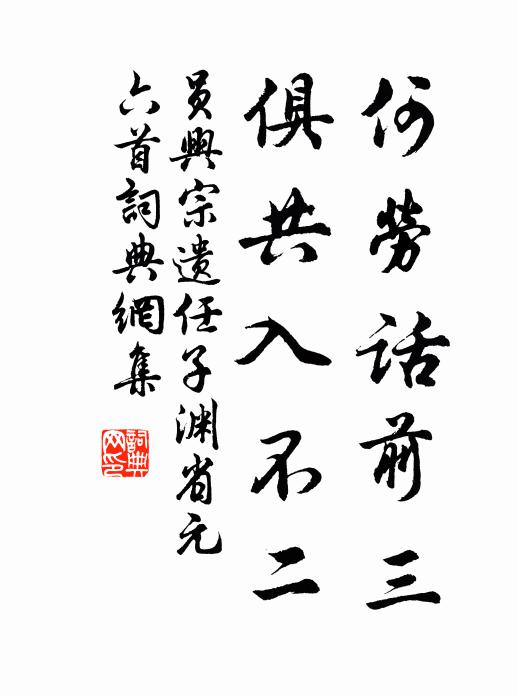 何勞話前三
俱共入不二
員興宗遺任子渊省元
六首詞典網集
詞典網印